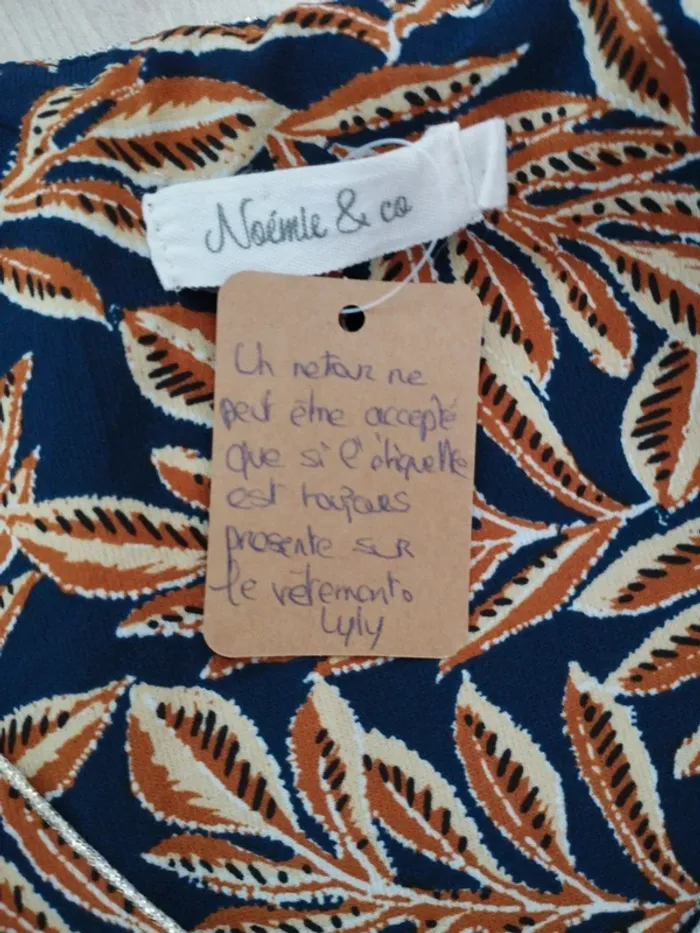 Noémie & co
Un retour ne
peut être accepté
que si l'étiquette
est toujours
presente sur
le vêtement.
Lyly